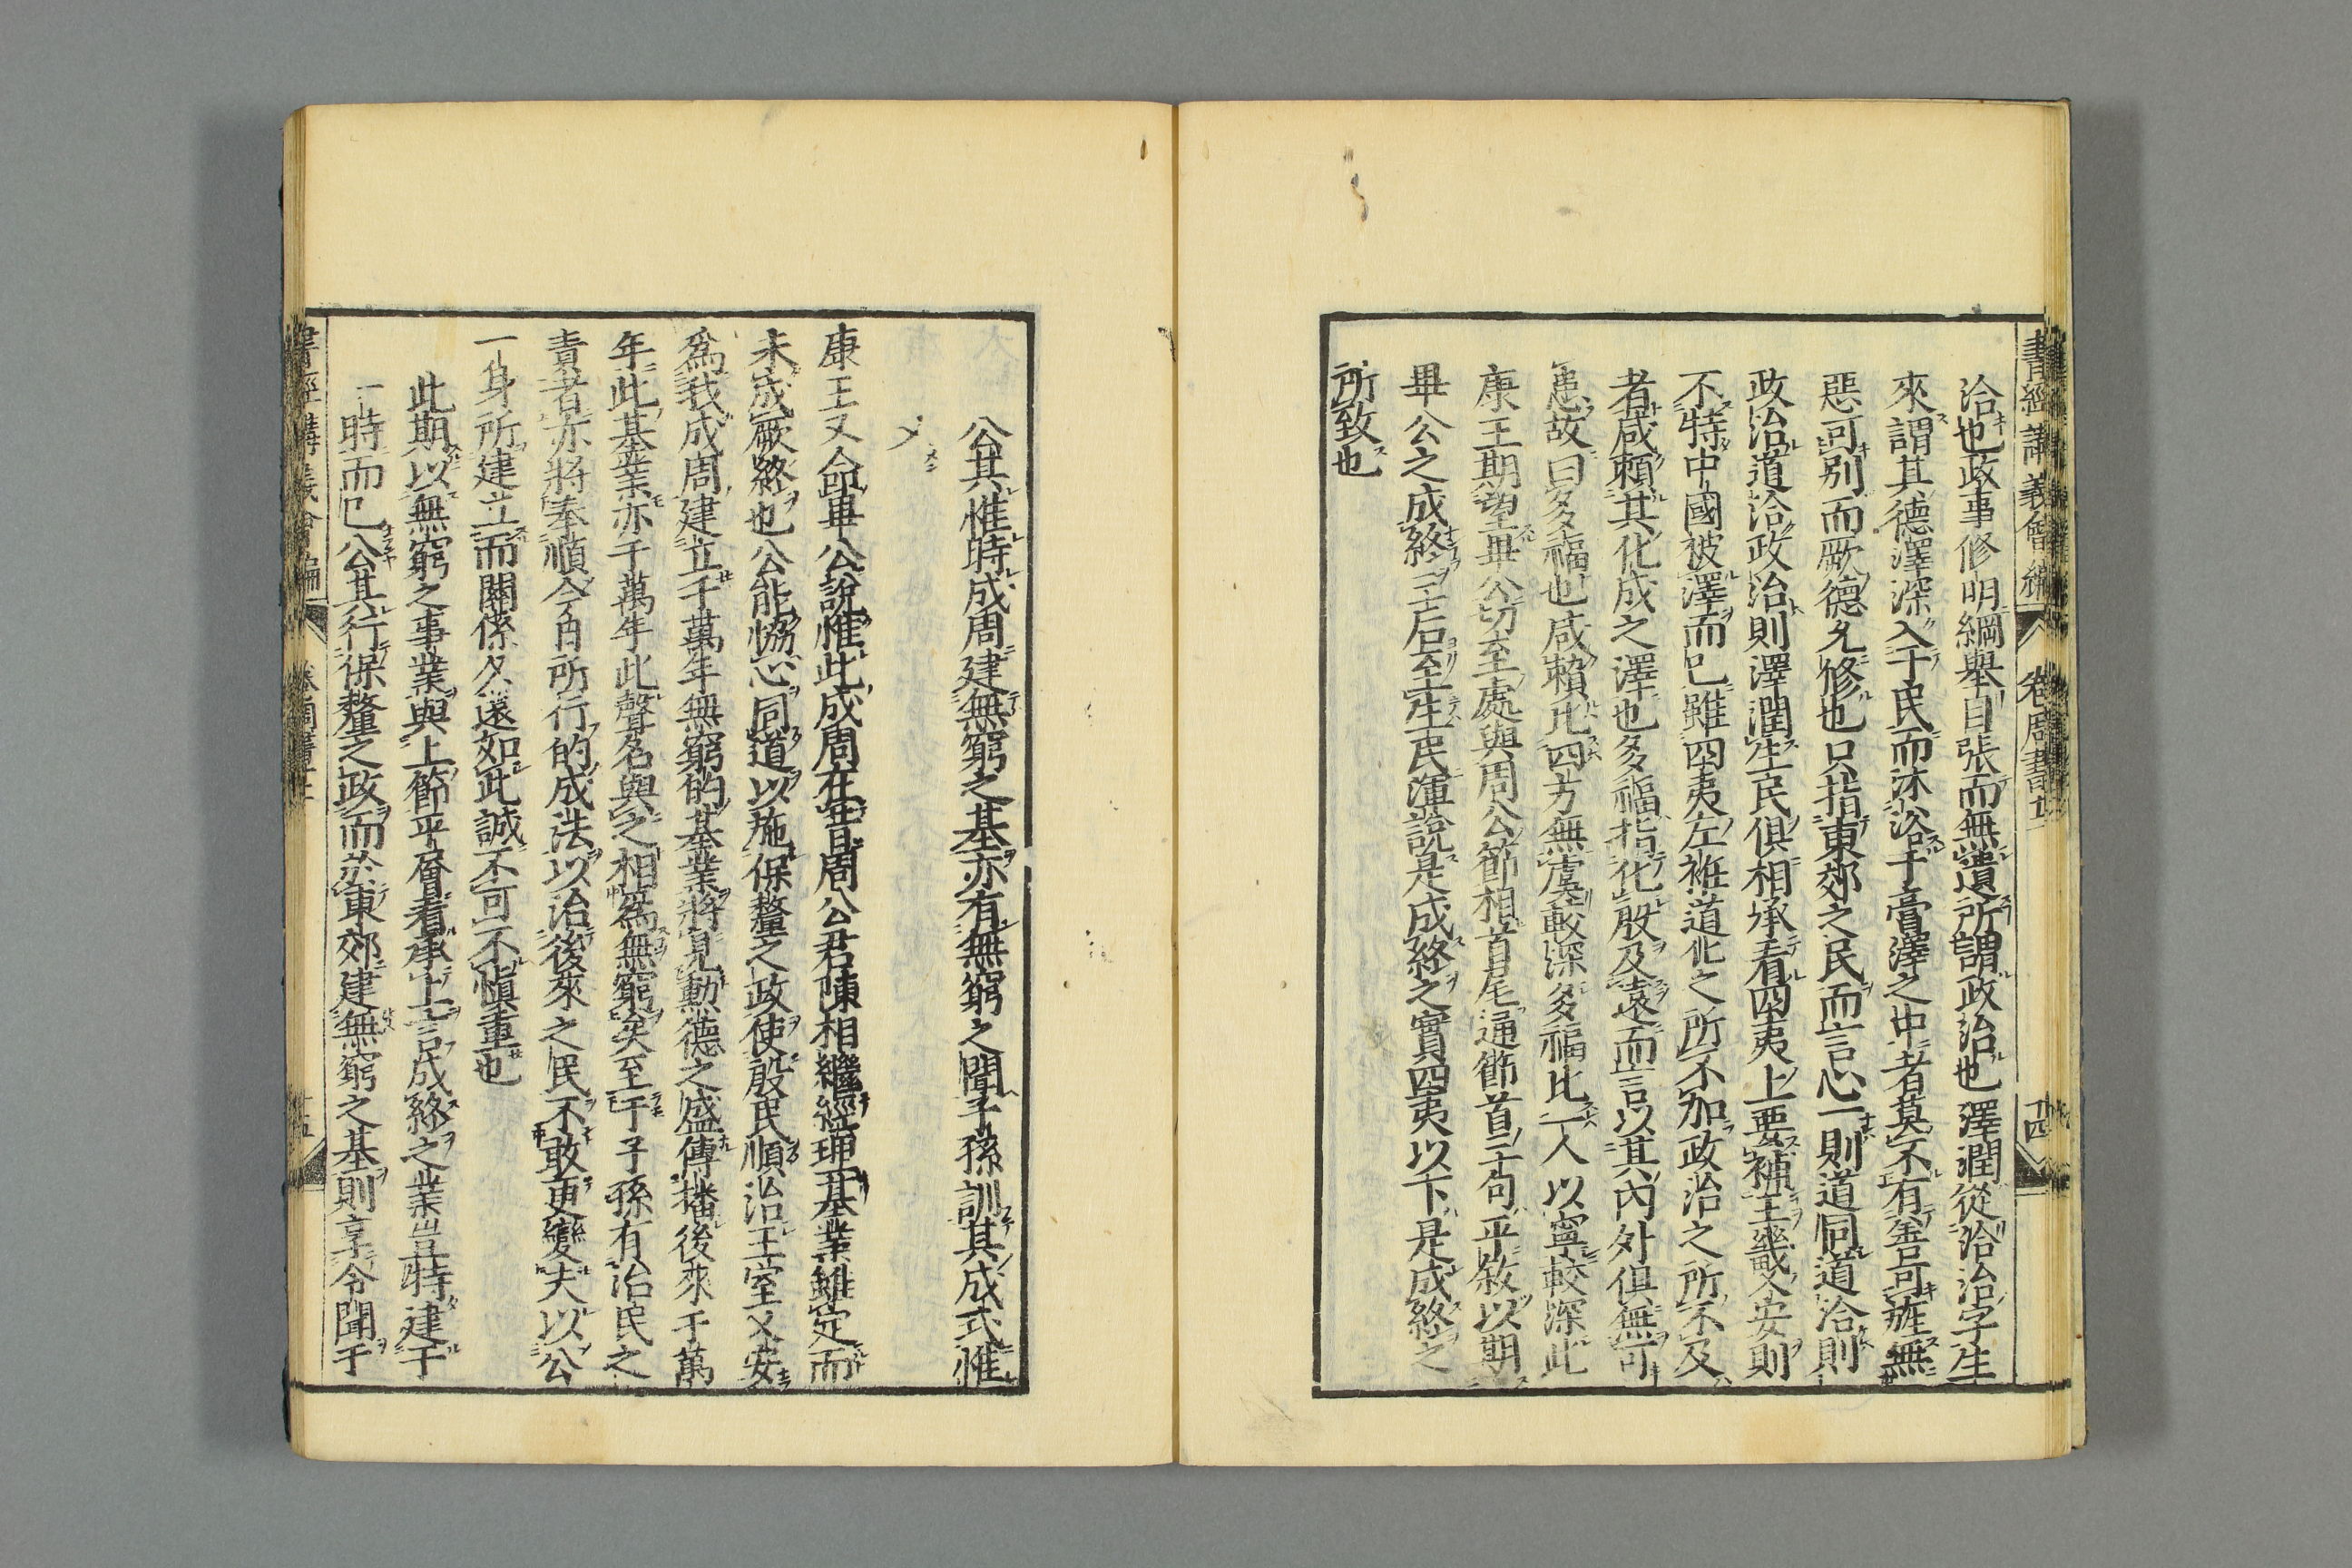 書經講義會編 卷周書十二 十四
洽也政事修明綱舉目張而無遺所謂政治也澤潤從洽治字生
來謂其德澤深入于民而沐浴于膏澤之中者莫不有善可旌無
惡可別而厥德允修也只指東郊之民而言心一則道同道洽則
政治道洽政治則澤潤生民俱相承看四夷上要補王畿乂安則
不特中國被澤而已雖四夷左衽道化之所不加政治之所不及
者咸賴其化成之澤也多福指化殷及遠而言以其內外俱無可
患故曰多福也咸賴比四方無虞較深多福比一人以寧較深此
康王期望畢公切至處與周公節相首尾通節首二句平敘以期
畢公之成終三后至生民渾說是成終之實四夷以下是成終之
所致也
公其惟時成周建無窮之基亦有無窮之聞子孫訓其成式惟
乂
康王又命畢公說惟此成周在昔周公君陳相繼經理基業雖定而
未成厥終也公能恊心同道以施保釐之政使殷民順治王室乂安
爲我成周建立千萬年無窮的基業將見勳德之盛傳播後來千萬
年此基業亦千萬年此聲名與之相爲無窮矣至于子孫有治民之
責者亦將奉順今日所行的成法以治後來之民不敢更變夫以公
一身所建立而關係久遠如此誠不可不愼重也
此期以無窮之事業與上節平層看承上言成終之業豈特建于
一時而已公其行保釐之政而於東郊建無窮之基則享令聞于
書經講義會編 卷周書十二 十五